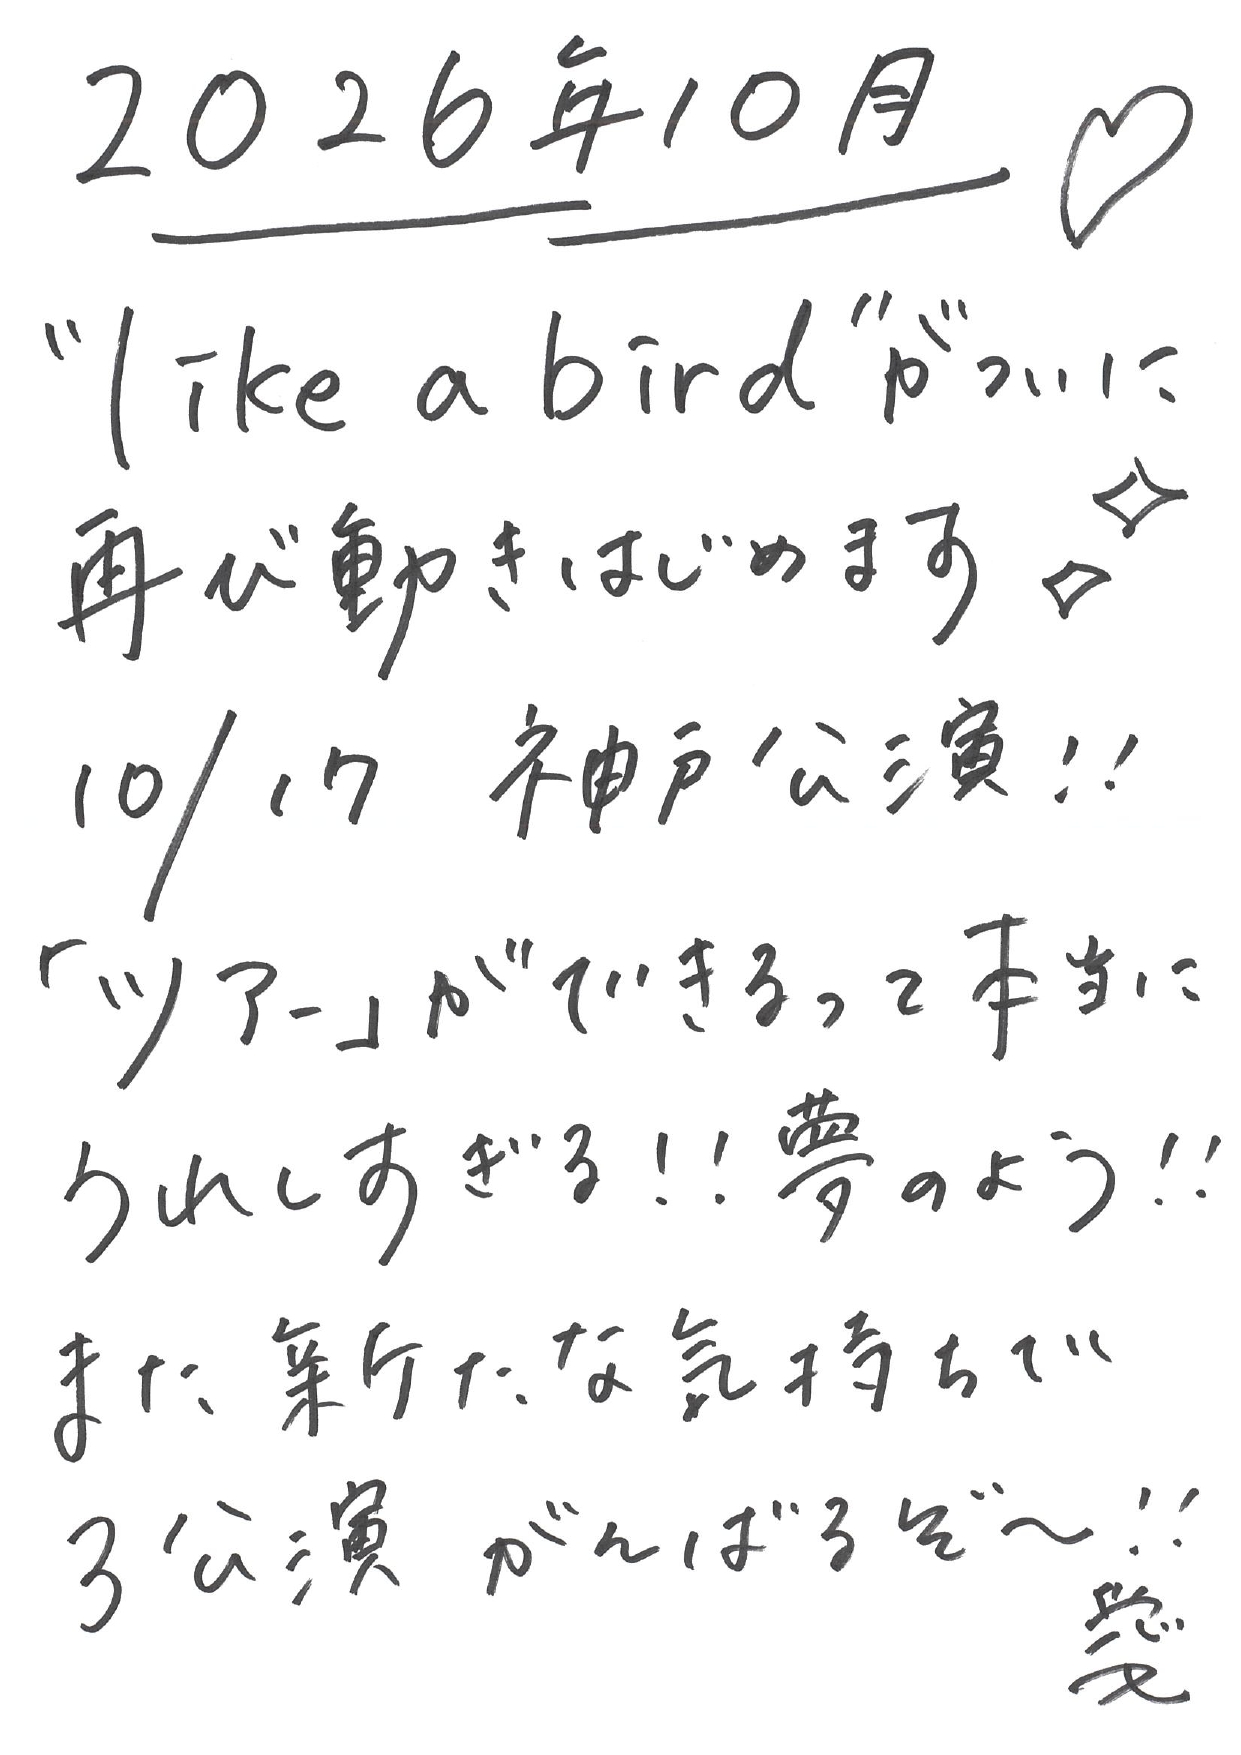 2026年10月
"like a bird"がついに
再び動きはじめます
10/17 神戸公演!!
「ツアー」ができるって本当に
うれしすぎる!!夢のよう!!
また新たな気持ちで
3公演 がんばるぞ〜!!
愛